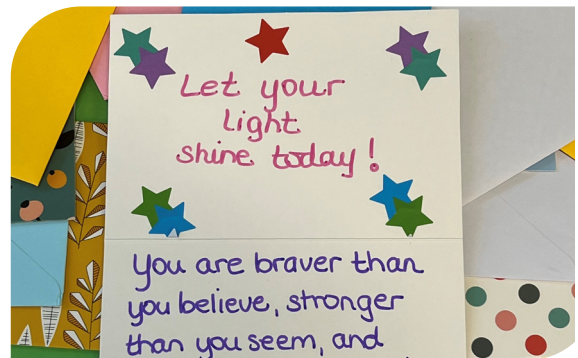 Let your
light
shine today!
You are braver than
you believe, stronger
than you seem, and